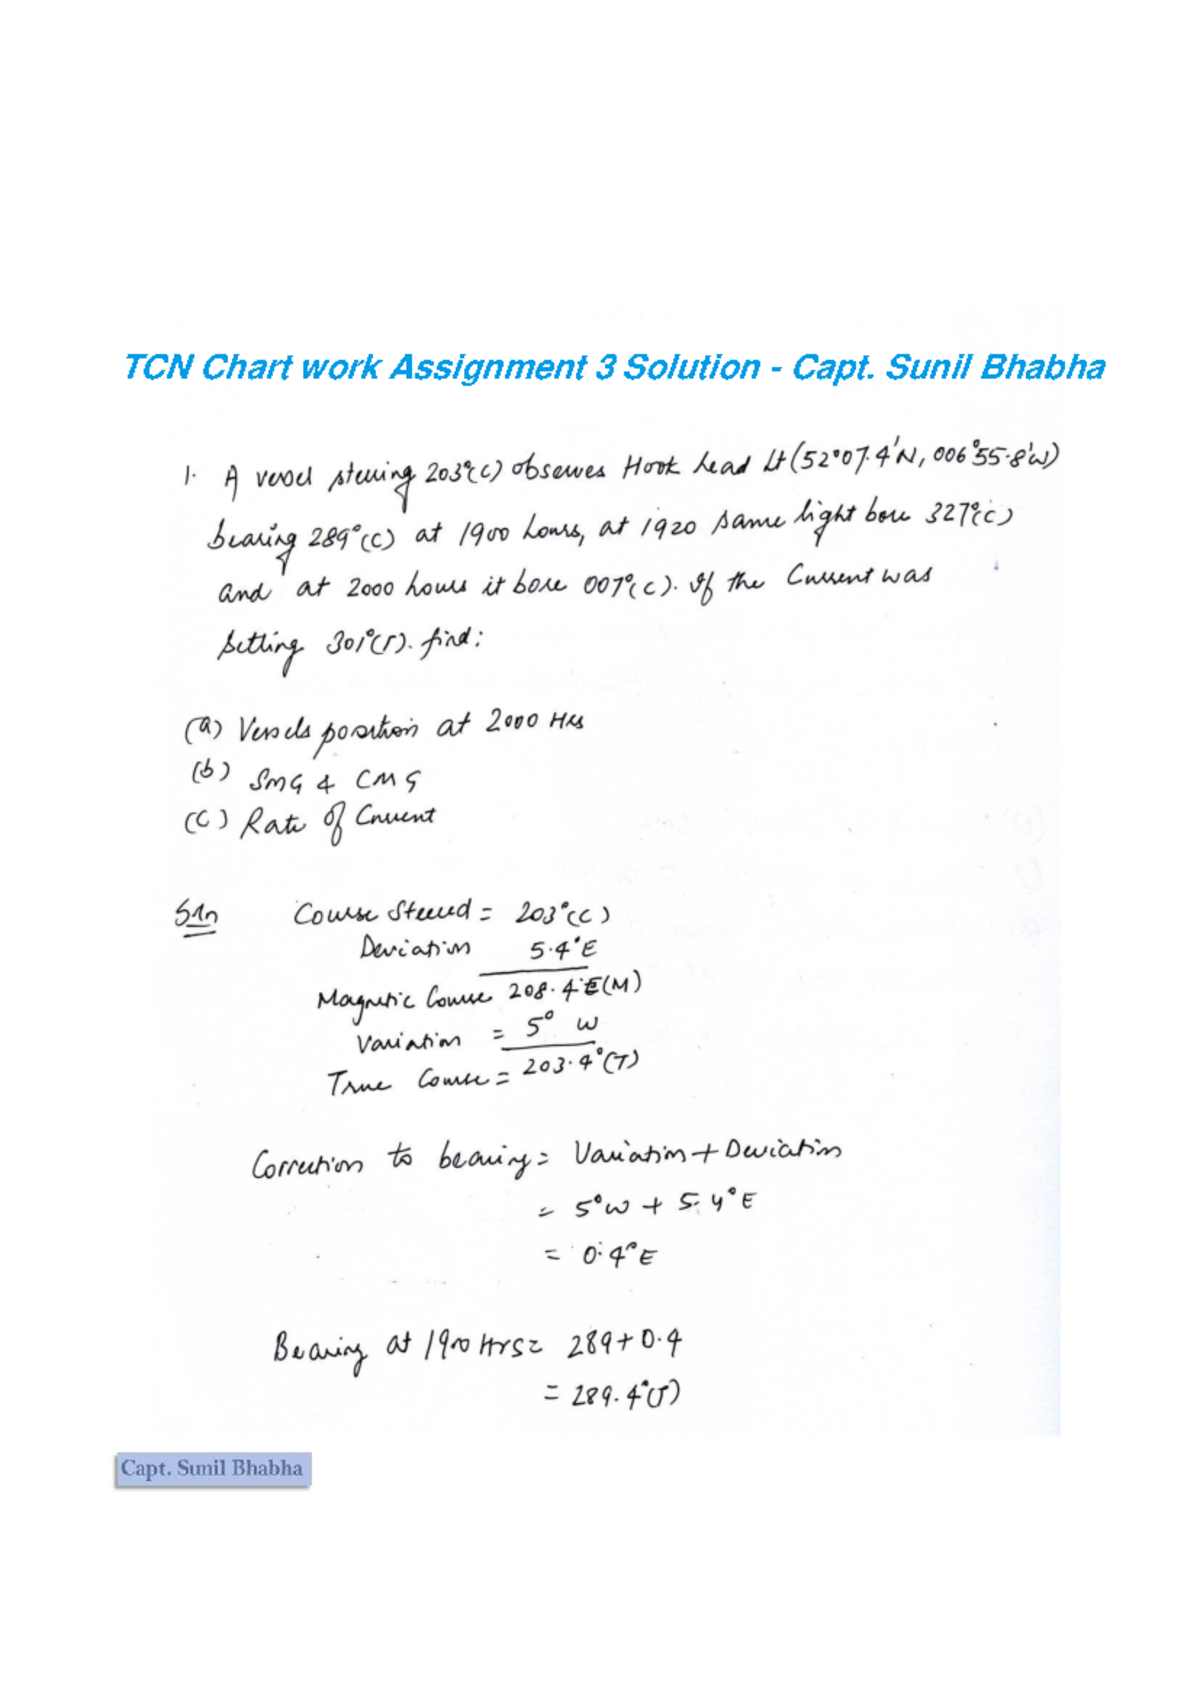 TCN Chart work Assignment 3 Solution - Capt. Sunil Bhabha
1. A vessel steering 203°(C) observes Hook head Lt (52°07.4'N, 006°55.8'W)
bearing 289°(C) at 1900 hours, at 1920 same light bore 327°(C)
and at 2000 hours it bore 007°(C). If the Current was
setting 301°(T). find:
(a) Vessels position at 2000 Hrs
(b) SMG & CMG
(C) Rate of Current
Soln Course Steered = 203°(C)
Deviation 5.4°E
Magnetic Course 208.4°E(M)
Variation = 5° W
True Course = 203.4°(T)
Correction to bearing = Variation + Deviation
= 5°W + 5.4°E
= 0.4°E
Bearing at 1900 Hrs = 289 + 0.4
= 289.4°(T)
Capt. Sunil Bhabha